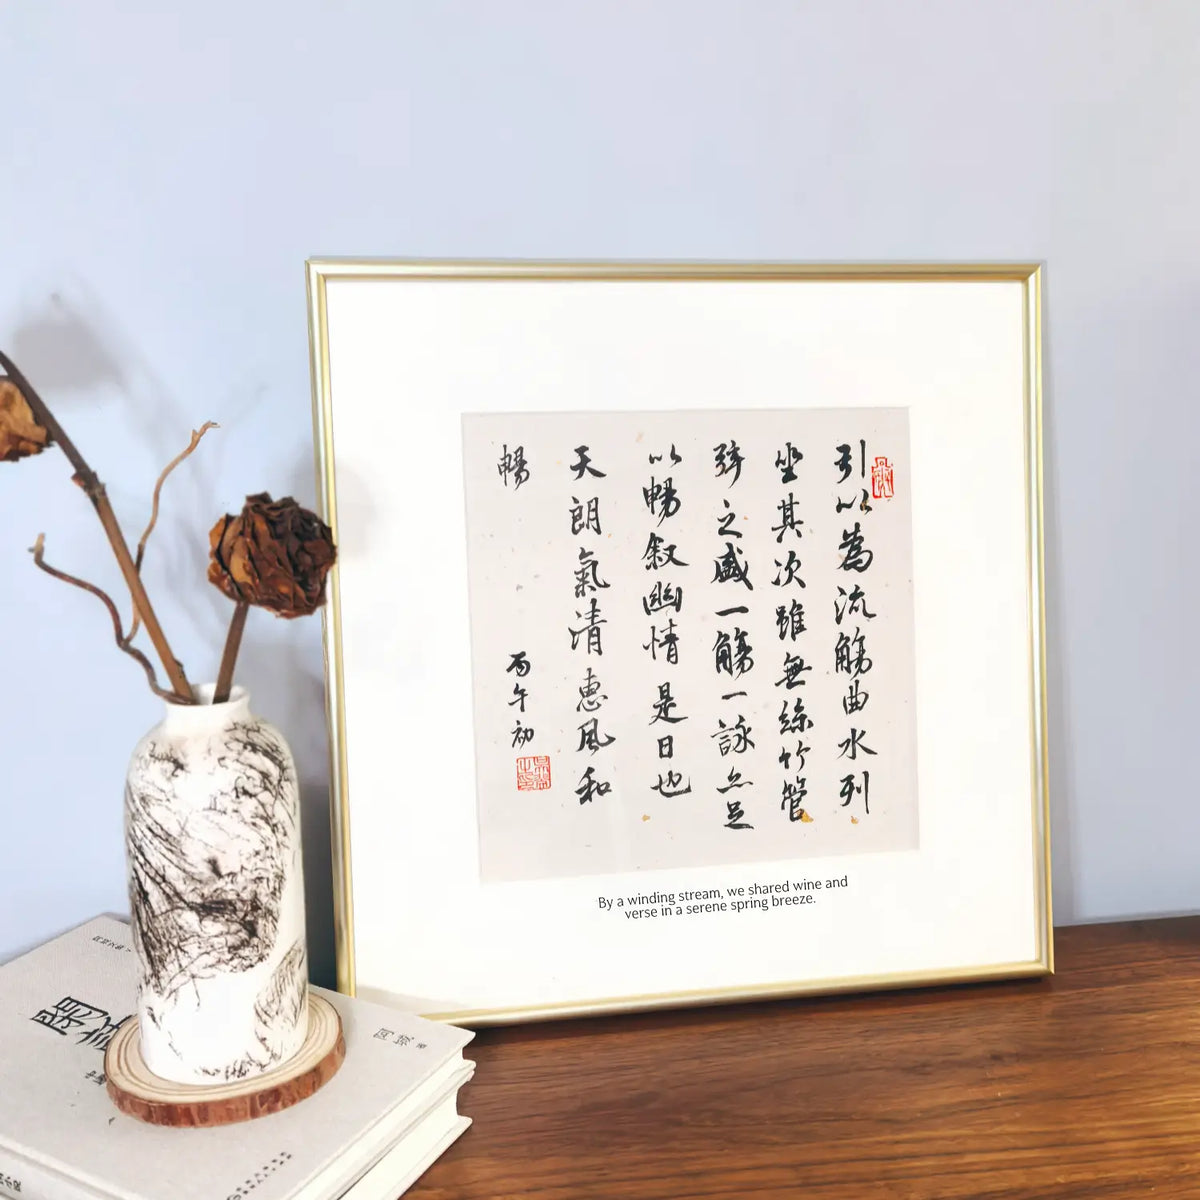 引以為流觴曲水列
坐其次雖無絲竹管
弦之盛一觴一詠亦足
以暢叙幽情是日也
天朗氣清惠風和
暢
丙午初
By a winding stream, we shared wine and
verse in a serene spring breeze.
阿城 著